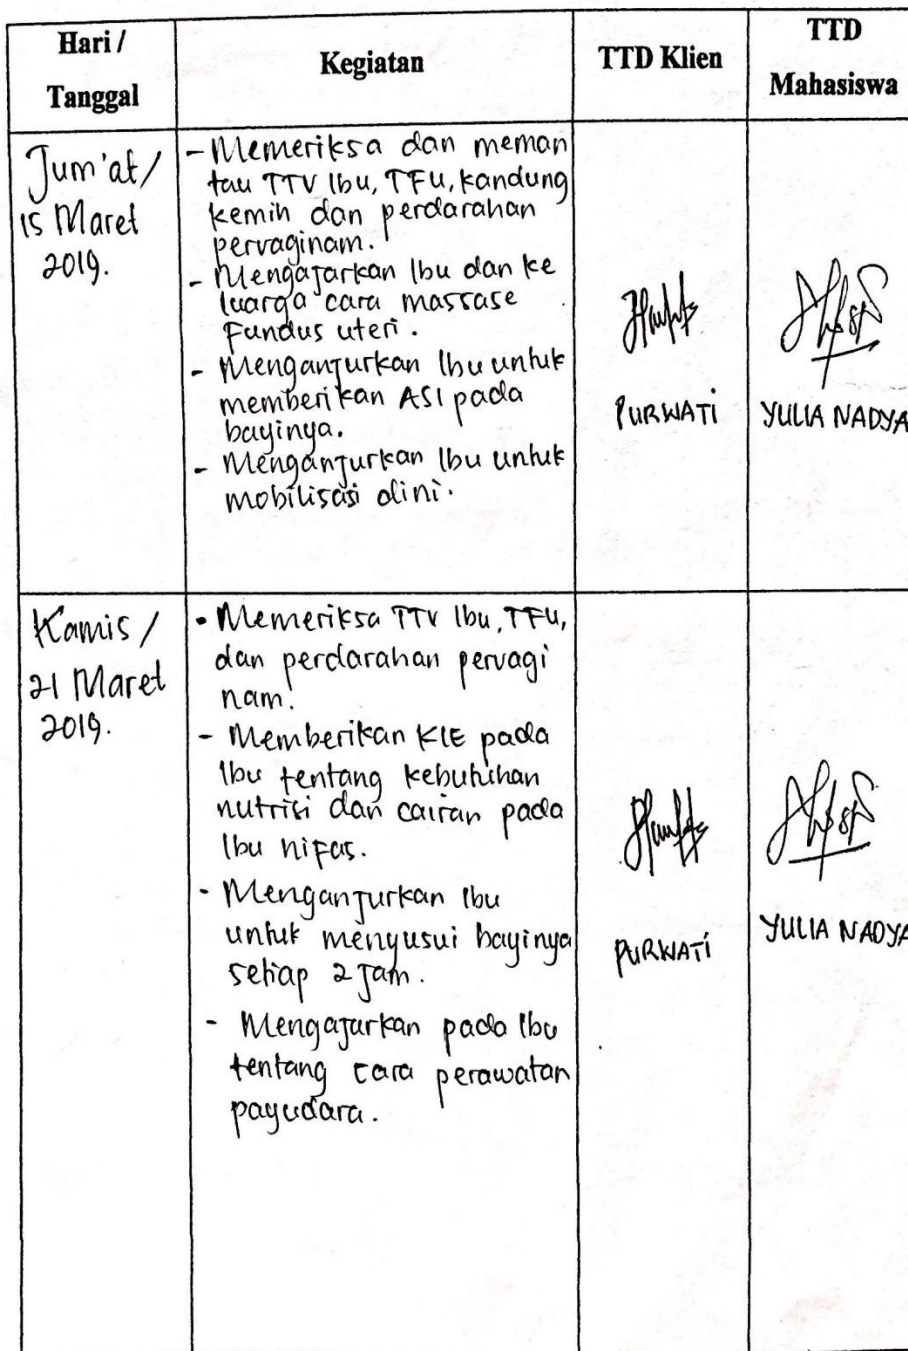 Hari /
Tanggal
Kegiatan
TTD Klien
TTD
Mahasiswa
Jum'at /
15 Maret
2019.
- Memeriksa dan meman
tau TTV Ibu, TFU, kandung
kemih dan perdarahan
pervaginam.
- Mengajarkan Ibu dan ke
luarga cara massase
Fundus uteri.
- Menganjurkan Ibu untuk
memberikan ASI pada
bayinya.
- Menganjurkan Ibu untuk
mobilisasi dini.
PURWATI
YULIA NADYA
Kamis /
21 Maret
2019.
- Memeriksa TTV Ibu, TFU,
dan perdarahan pervagi
nam.
- Memberikan KIE pada
Ibu tentang kebutuhan
nutrisi dan cairan pada
Ibu nifas.
- Menganjurkan Ibu
untuk menyusui bayinya
setiap 2 jam.
- Mengajarkan pada Ibu
tentang cara perawatan
payudara.
PURWATI
YULIA NADYA